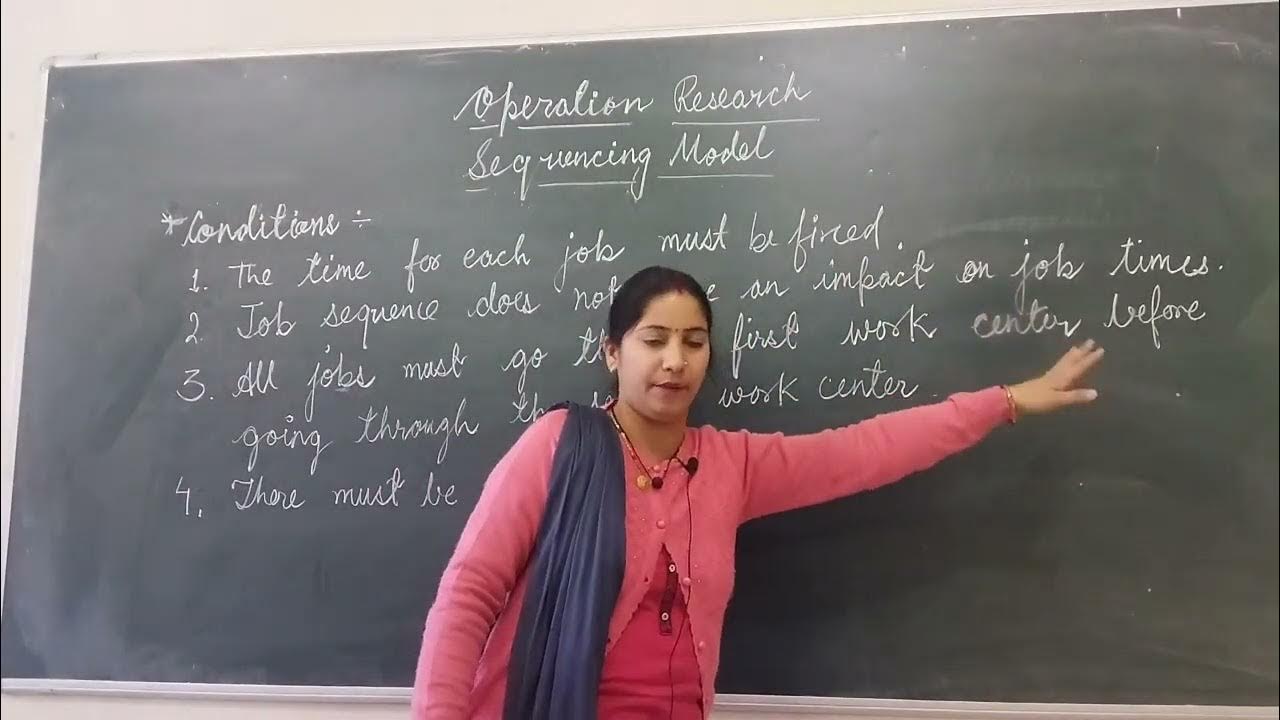 Operation Research
Sequencing Model
*Conditions ÷
1. The time for each job must be fixed.
2. Job sequence does not an impact on job times.
3. All jobs must go first work center before
going through work center.
4. There must be